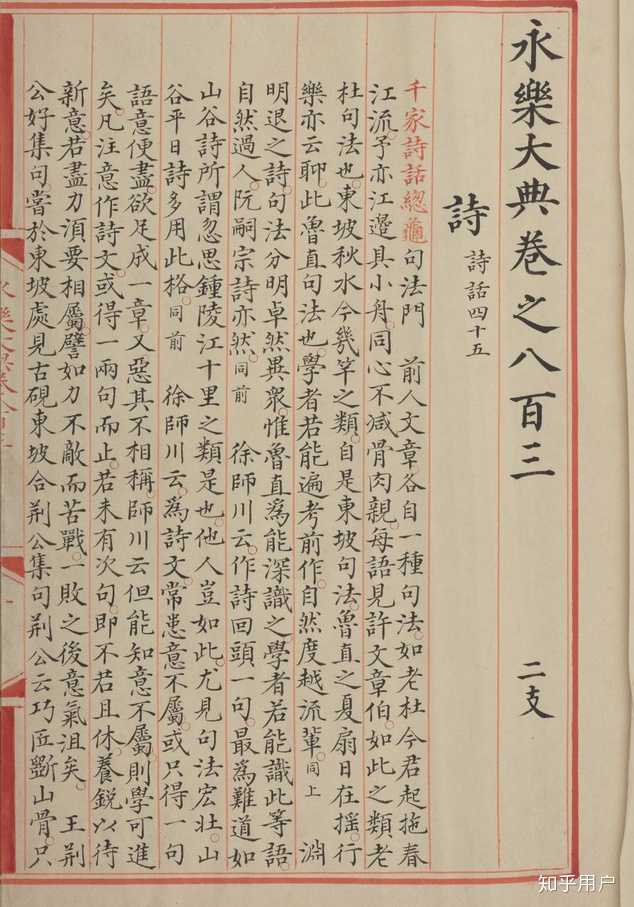 永樂大典卷之八百三 二支
詩 詩話四十五
千家詩話總龜句法門 前人文章各自一種句法。如老杜今君起拖春
江流。予亦江邊具小舟。同心不减骨肉親。每語見許文章伯。如此之類。老
杜句法也。東坡秋水今幾竿之類。自是東坡句法。魯直之夏扇日在摇。行
樂亦云聊。此魯直句法也。學者若能遍考前作。自然度越流軰。同上 淵
明退之詩。句法分明。卓然異衆。惟魯直爲能深識之。學者若能識此等語。
自然過人。阮嗣宗詩亦然。同前 徐師川云。作詩回頭一句。最爲難道。如
山谷詩所謂忽思鍾陵江十里之類是也。他人豈如此。尤見句法宏壯。山
谷平日詩多用此格。同前 徐師川云。爲詩文。常患意不屬。或只得一句
語意便盡。欲足成一章。又惡其不相稱。師川云。但能知意不屬。則學可進
矣。凡注意作詩文。或得一兩句而止。若未有次句。即不若且休。養鋭以待
新意。若盡力湏要相屬。譬如力不敵而苦戰。一敗之後。意氣沮矣。 王荆
公好集句。嘗於東坡處見古硯。東坡令荆公集句。荆公云。巧匠斲山骨。只
知乎用户